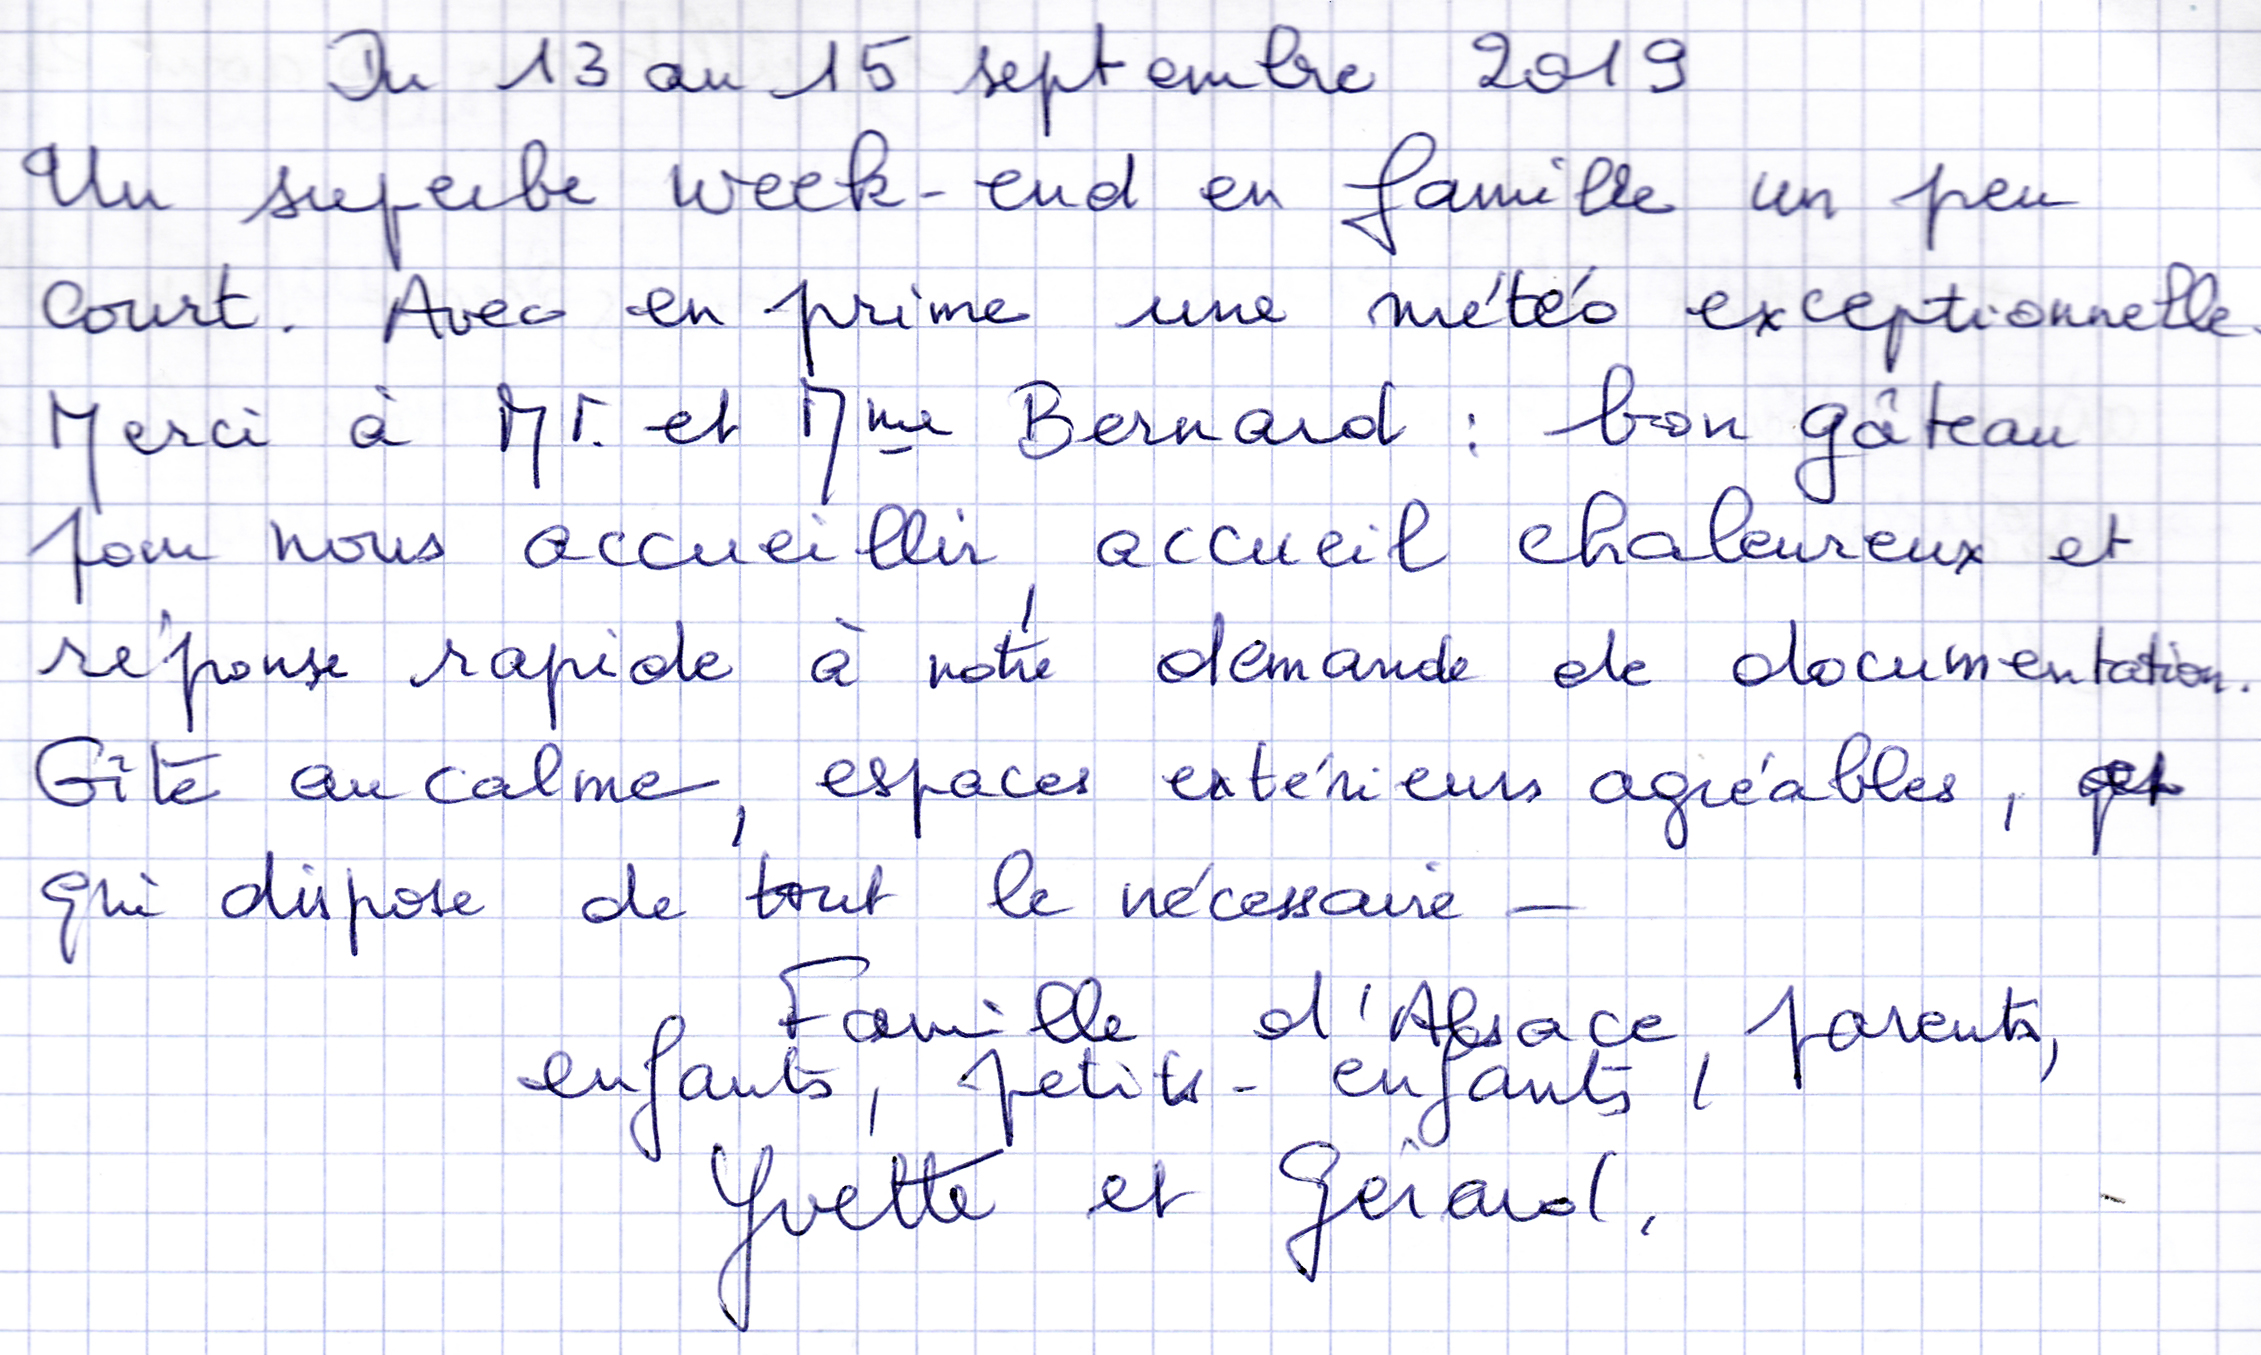 Du 13 au 15 septembre 2019
Un superbe week-end en famille un peu
court. Avec en prime une météo exceptionnelle.
Merci à Mr. et Mme Bernard : bon gâteau
pour nous accueillir, accueil chaleureux et
réponse rapide à notre demande de documentation.
Gîte au calme, espaces extérieurs agréables, et
qui dispose de tout le nécessaire –
Famille d'Alsace, parents,
enfants, petits-enfants,
Yvette et Gérard.